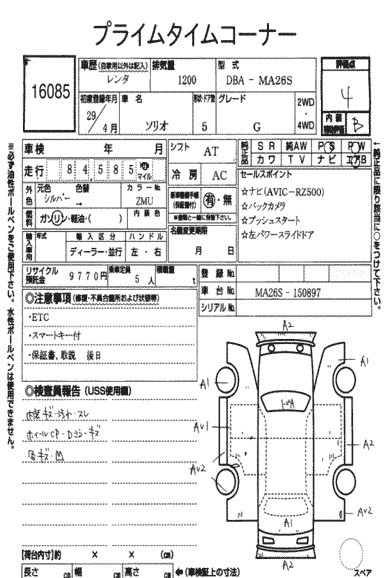 プライムタイムコーナー
16085
車歴(自家用以外は記入) 排気量 型式
レンタ 1200 DBA - MA26S
評価点
4
初度登録年月 車名 形状・ドア数 グレード
29年 4月 ソリオ 5 G
2WD・4WD
内装
B
車検 年 月
シフト AT
純正品 SR 純AW PS PW
カワ TV ナビ エアB
走行 84,585 km マイル
冷房 AC
セールスポイント
☆ナビ(AVIC-RZ500)
☆バックカメラ
☆プッシュスタート
☆左パワースライドドア
外色 元色 色替 カラーNo.
シルバー→ ZMU
燃料 ガソリン・軽油・( ) 内装色
有・無
名義変更期限
月 日
輸入車用 年式 輸入区分 ハンドル
ディーラー・並行 左・右
リサイクル預託金 9770円 乗車定員 5人 積載量 t
登録No.
車台No. MA26S - 150897
シリアルNo.
◎注意事項(修復・不具合箇所および状態等)
・ETC
・スマートキー付
・保証書、取説 後日
◎検査員報告(USS使用欄)
内装キズ・汚れ・スレ
キズ・M
A2
A1
A1
A
AV1
A2
AV2
A1
AV2
A2
スペア
【荷台内寸】約 × × (cm)
長さ cm 幅 cm 高さ cm ←(車検証上の寸法)
※必ず油性ボールペンをご使用下さい。水性ボールペンは使用できません。
純正品に限り該当に○をつけて下さい。